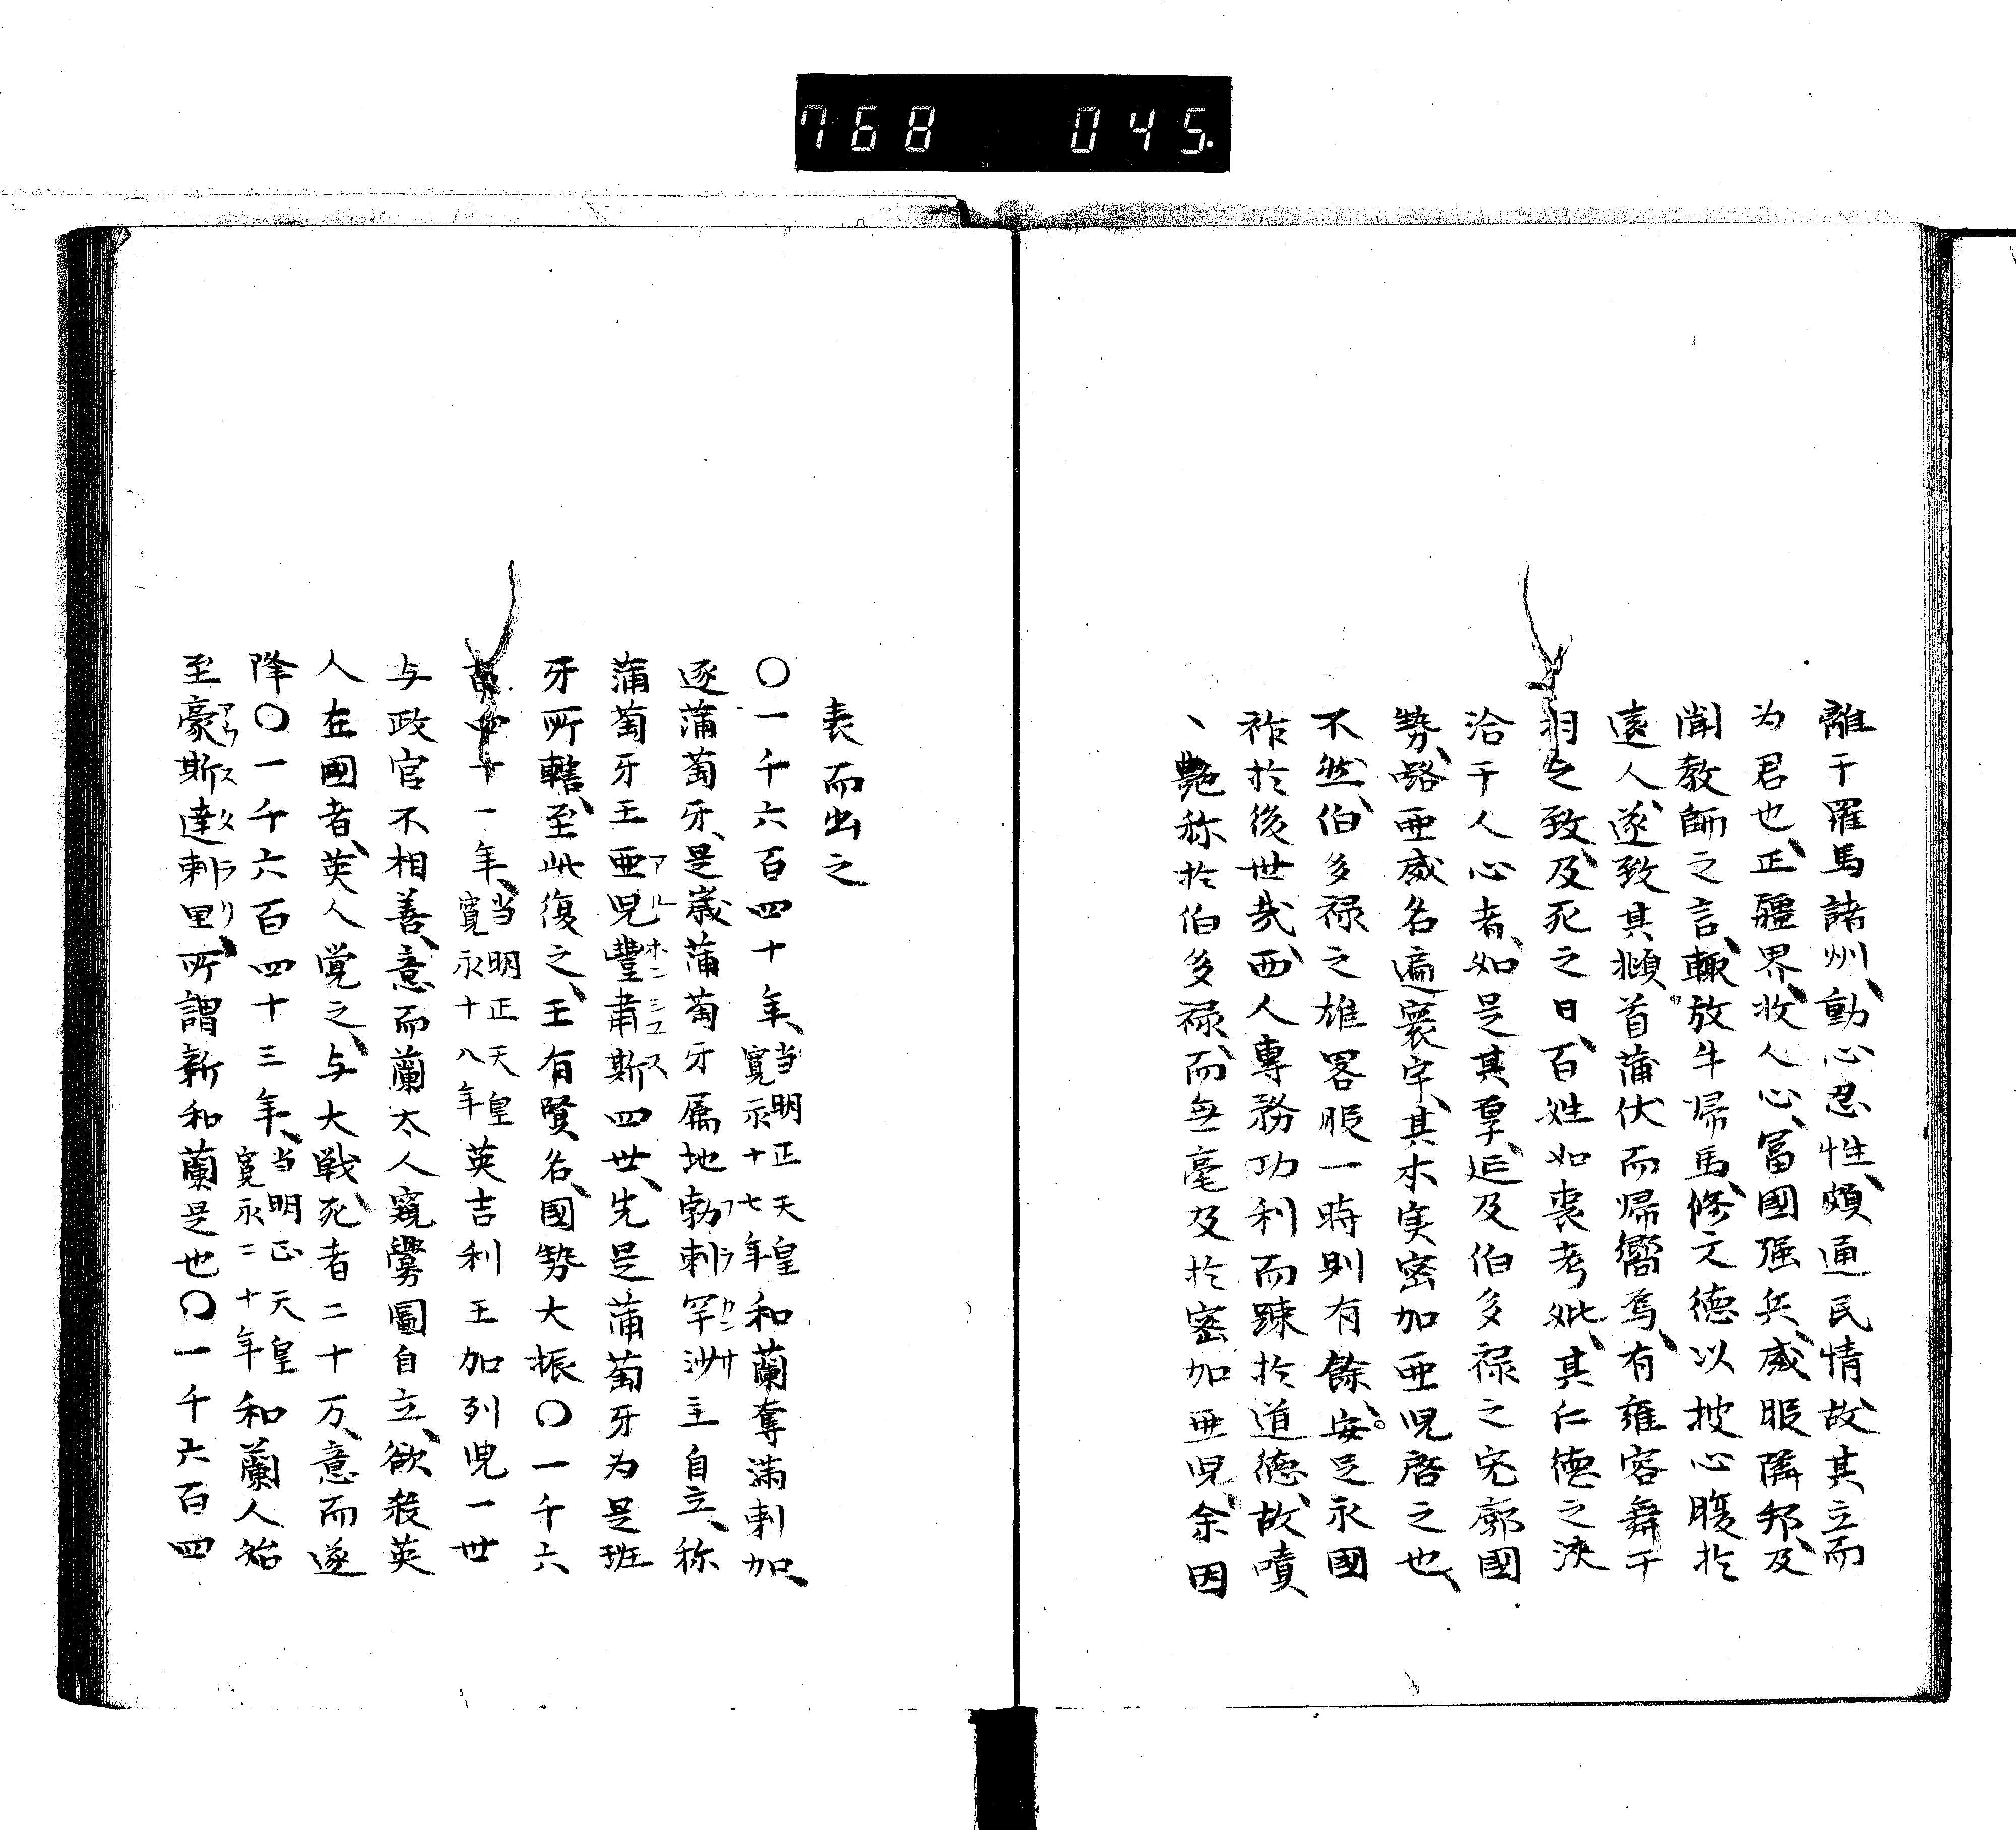 768 045.
離于羅馬諸州、動心忍性、頗通民情故、其立而
为君也、正疆界、收人心、冨國强兵、威服隣邦、及
聞教師之言、輙放牛帰馬、修文德以披心腹於
遠人、遂致其頫首蒲伏而帰嚮焉、有雍容舞干
羽之致、及死之日、百姓如喪考妣、其仁德之浹
洽于人心者、如是其厚、延及伯多禄之宛廓國
勢、嘅亜威名遍寰宇、其本実密加亜児啓之也、
不然、伯多禄之雄畧服一時則有餘、安足永國
祚於後世哉、西人專務功利而踈於道德、故嘖
、艶称於伯多禄、而無毫及於密加亜児、余因
表而出之
〇一千六百四十年、当明正天皇寛永十七年和蘭奪滿剌加、
逐蒲萄牙、是歳蒲萄牙属地勃剌罕沙主自立、称
フラカンサ
蒲萄牙王亜児豐肅斯四世、先是蒲萄牙为是班
アルホンシユス
牙所轄、至此復之、王有賢名、國勢大振〇一千六
百四十一年、当明正天皇寛永十八年英吉利王加列児一世
与政官不相善、意而蘭太人窺釁圖自立、欲殺英
人在國者、英人覚之、与大戦、死者二十万、意而遂
降〇一千六百四十三年、当明正天皇寛永二十年和蘭人始
至豪斯達剌里、所謂新和蘭是也〇一千六百四
アウスタラリ